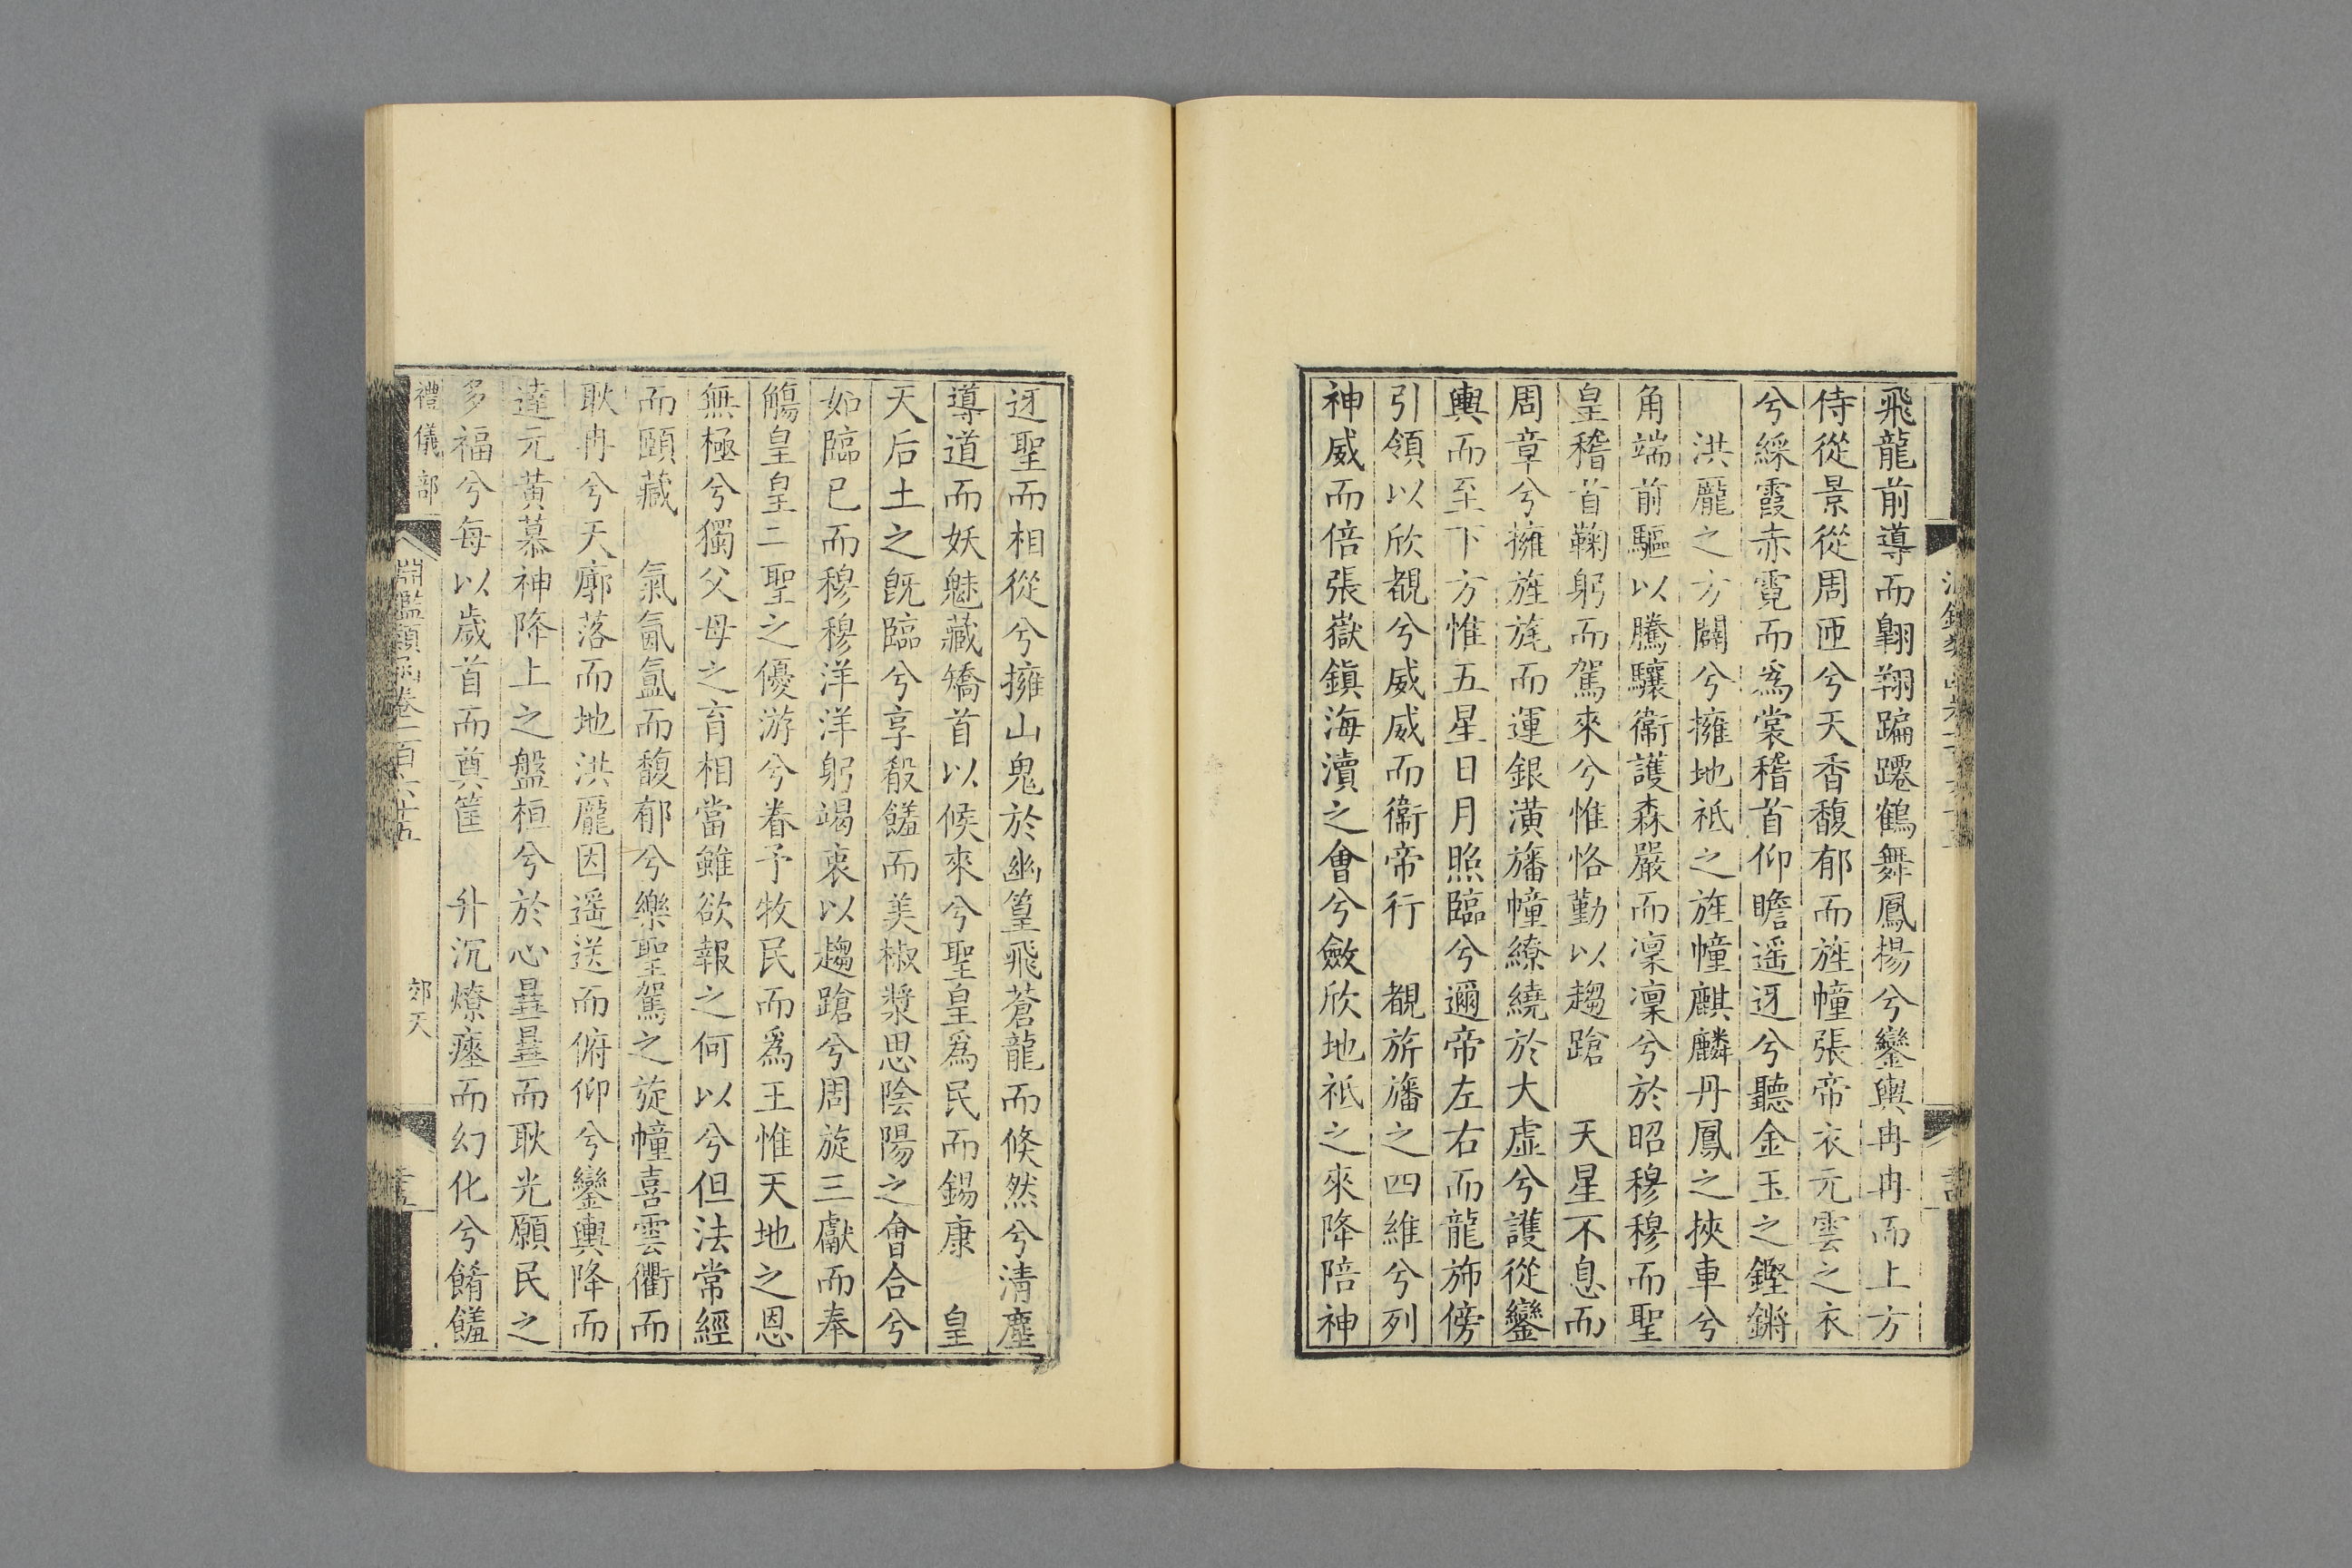 飛龍前導而翺翔蹁躚鶴舞鳳揚兮鑾輿冉冉而上方
侍從景從周匝兮天香馥郁而旌幢張帝衣元雲之衣
兮綵霞赤霓而爲裳稽首仰瞻遥迓兮聽金玉之鏗鏘
洪龐之方闢兮擁地祗之旌幢麒麟丹鳳之挾車兮
角端前驅以騰驤衞護森嚴而凜凜兮於昭穆穆而聖
皇稽首鞠躬而駕來兮惟恪勤以趨蹌　天星不息而
周章兮擁旌旄而運銀潢旛幢繚繞於大虛兮護從鑾
輿而至下方惟五星日月照臨兮邇帝左右而龍斾傍
引領以欣覩兮威威而衞帝行　覩旂旛之四維兮列
神威而倍張嶽鎮海瀆之會兮斂欣地祗之來降陪神
迓聖而相從兮擁山鬼於幽篁飛蒼龍而倏然兮清塵
導道而妖魅藏矯首以候來兮聖皇爲民而錫康　皇
天后土之旣臨兮享殽饈而美椒漿思陰陽之會合兮
如臨已而穆穆洋洋躬竭衷以趨蹌兮周旋三獻而奉
觴皇皇二聖之優游兮眷予牧民而爲王惟天地之恩
無極兮獨父母之育相當雖欲報之何以兮但法常經
而頤藏　氣氤氳而馥郁兮樂聖駕之旋幢喜雲衢而
耿冉兮天廓落而地洪龐因遥送而俯仰兮鑾輿降而
達元黃慕神降上之盤桓兮於心曡曡而耿光願民之
多福兮每以歲首而奠筐　升沉燎瘞而幻化兮餚饈
禮儀部
淵鑑類函卷一百六十五
郊天